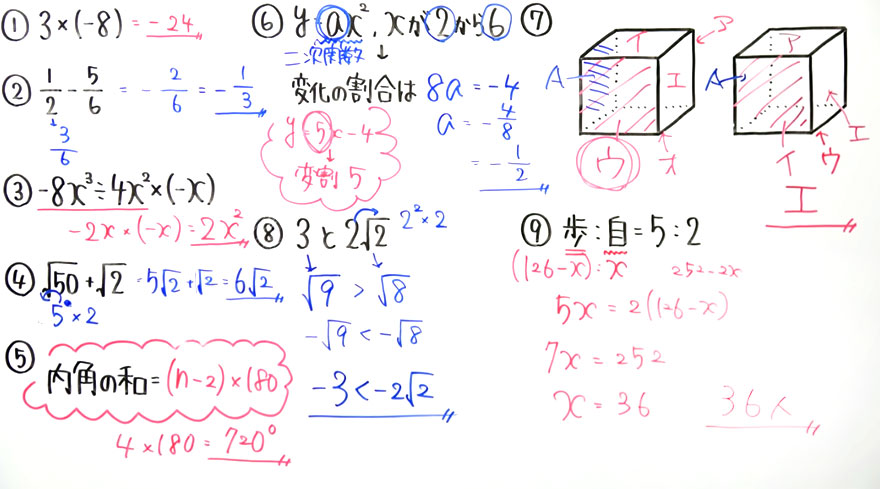 ① 3×(-8)=-24
② 1/2-5/6=-2/6=-1/3
3/6
③ -8x³÷4x²×(-x)
-2x×(-x)=2x²
④ √50+√2=5√2+√2=6√2
5²×2
⑤ 内角の和=(n-2)×180
4×180=720°
⑥ y=ax², xが2から6
二次関数
変化の割合は 8a=-4
a=-4/8
=-1/2
y=5x-4
変割 5
⑦
A イ ア エ ウ オ
A ア エ イ ウ
エ
⑧ 3と2√2 2²×2
√9 > √8
-√9 < -√8
-3<-2√2
⑨ 歩:自=5:2
(126-x):x 252-2x
5x=2(126-x)
7x=252
x=36 36人